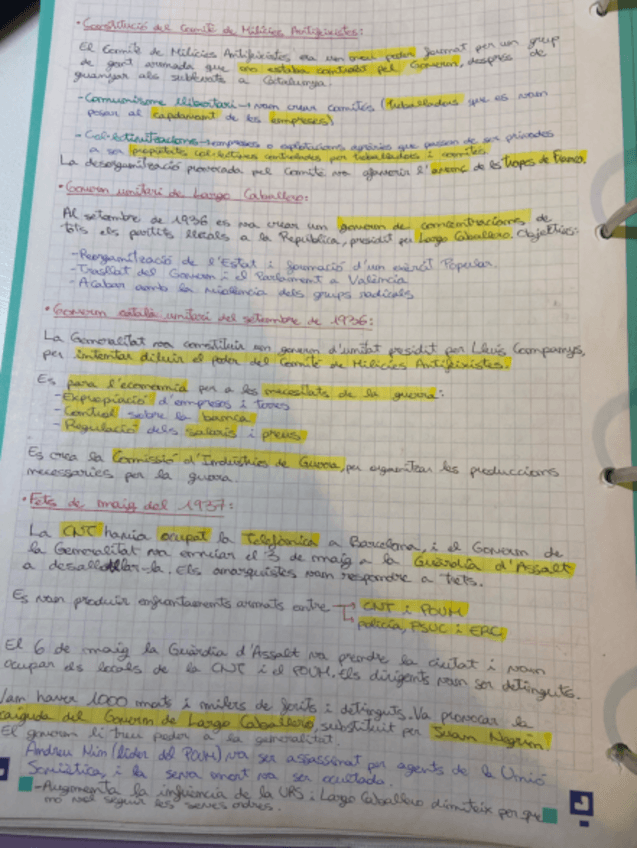 · Constitució del Comité de Milícies Antifeixistes:
El Comité de Milícies Antifeixistes era un nou poder format per un grup
de gent armada que no estaba controlat pel Govern, després de
guanyar als sublevats a Catalunya.
- Comunisme llibertari → van crear comitès (treballadors que es van
posar al capdavant de les empreses)
- Col·lectivitzacions → empreses o explotacions agràries que passen de ser privades
a ser propietats col·lectives controlades per treballadors i comitès.
La desorganització provocada pel Comité va afavorir l'avanç de les tropes de Franco.
· Govern unitari de Largo Caballero:
Al setembre de 1936 es va crear un govern de concentracions de
tots els partits lleials a la República, presidit per Largo Caballero. Objectius:
- Reorganització de l'Estat i formació d'un exèrcit Popular.
- Trasllat del Govern i el Parlament a València
- Acabar amb la violència dels grups radicals
· Govern català unitari del setembre de 1936:
La Generalitat va constituir un govern d'unitat presidit per Lluís Companys,
per intentar diluir el poder del Comité de Milícies Antifeixistes.
Es para l'economia per a les necesitats de la guerra:
- Expropiació d'empreses i torres
- Control sobre la banca
- Regulació dels salaris i preus
Es crea la Comissió d'Indústries de Guerra, per organitzar les produccions
necessaries per la guerra.
· Fets de maig del 1937:
La CNT havia ocupat la Telefònica a Barcelona, i el Govern de
la Generalitat va enviar el 3 de maig a la Guàrdia d'Assalt
a desallotjar-la. Els anarquistes van respondre a tiets.
Es van produir enfrontaments armats entre → CNT i POUM
→ policía, PSUC i ERC
El 6 de maig la Guàrdia d'Assalt va prendre la ciutat i van
ocupar els locals de la CNT i el POUM. Els dirigents van ser detinguts.
Van haver 1000 morts i milers de ferits i detinguts. Va provocar la
caiguda del Govern de Largo Caballero, substituit per Juan Negrín.
El govern li treu poder a la generalitat.
Andreu Nin (líder del POUM) va ser assassinat per agents de la Unió
Soviètica, i la seva mort va ser ocultada.
- Augmenta la influència de la URS i Largo Caballero dimiteix per que
no vol seguir les seves ordres.